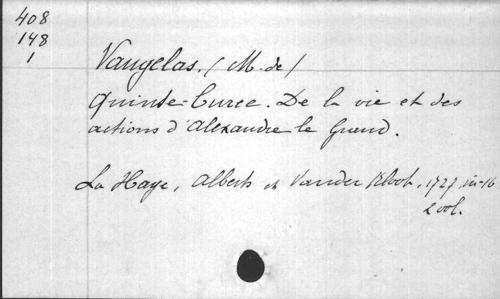 408
148
1
Vaugelas. (M. de)
Quinte-Curce. De la vie et des
actions d'Alexandre le Grand.
La Haye, Alberts et Vander Kloot, 1727 in-16
2 vol.